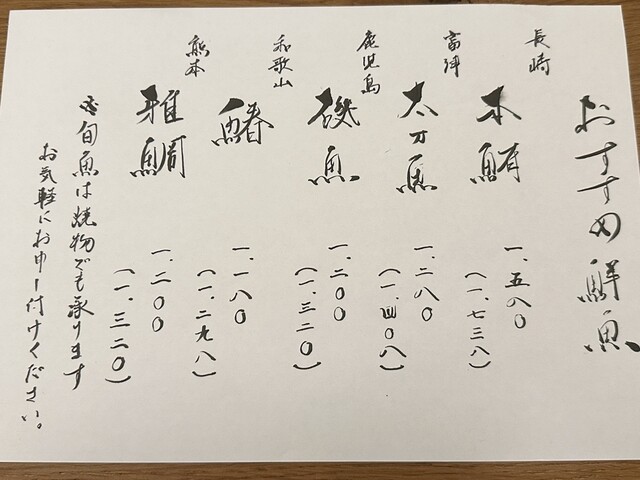 おすすめ鮮魚
長崎
本鮪
一、五八〇
(一、七三八)
富津
太刀魚
一、二八〇
(一、四〇八)
鹿児島
磯魚
一、二〇〇
(一、三二〇)
和歌山
鰆
一、一八〇
(一、二九八)
熊本
雅鯛
一、二〇〇
(一、三二〇)
※旬魚は焼物でも承ります
お気軽にお申し付けください。